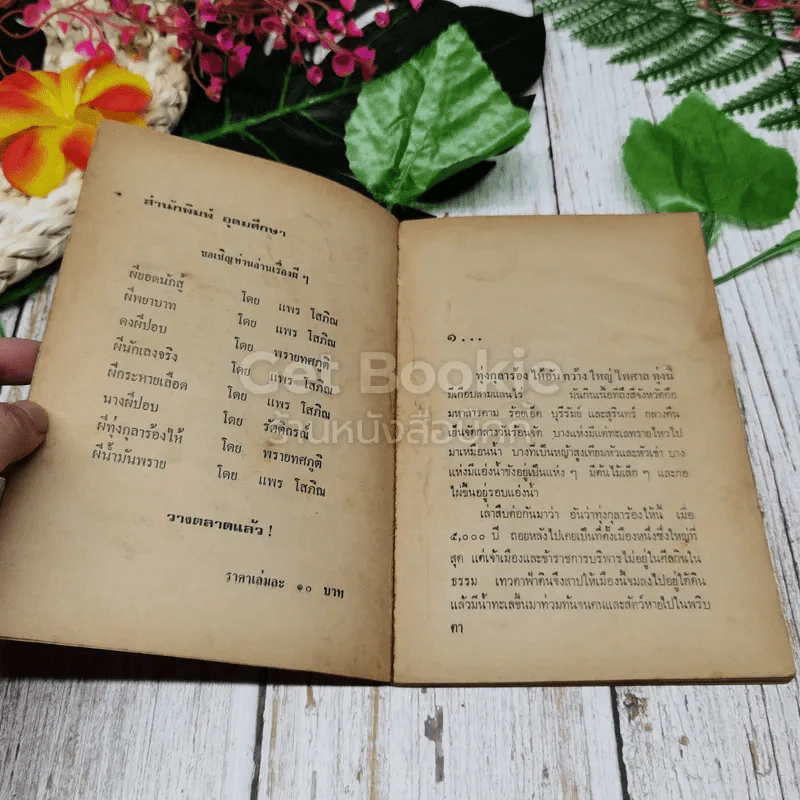 สำนักพิมพ์ อุดมศึกษา
ขอเชิญท่านอ่านเรื่องผี ๆ
ผียอดนักสู้ โดย แพร โสภิณ
ผีพยาบาท โดย แพร โสภิณ
ดงผีปอบ โดย พรายทศภูติ
ผีนักเลงจริง โดย แพร โสภิณ
ผีกระหายเลือด โดย แพร โสภิณ
นางผีปอบ โดย รัตติกรณ์
ผีทุ่งกุลาร้องไห้ โดย พรายทศภูติ
ผีน้ำมันพราย โดย แพร โสภิณ
วางตลาดแล้ว !
ราคาเล่มละ ๑๐ บาท
๑...
ทุ่งกุลาร้องไห้อันกว้างใหญ่ไพศาล ทุ่งนี้
มีเกือบสามแสนไร่ มันกินเนื้อที่ถึงสี่จังหวัดคือ
มหาสารคาม ร้อยเอ็ด บุรีรัมย์ และสุรินทร์ กลางคืน
เย็นจัดกลางวันร้อนจัด บางแห่งมีแต่ทะเลทรายไหวไป
มาเหมือนน้ำ บางที่เป็นหญ้าสูงเทียมหัวและหัวเข่า บาง
แห่งมีแอ่งน้ำขังอยู่เป็นแห่ง ๆ มีต้นไม้เล็ก ๆ และกอ
ไผ่ขึ้นอยู่รอบแอ่งน้ำ
เล่าสืบต่อกันมาว่า อันว่าทุ่งกุลาร้องไห้นี้ เมื่อ
๕,๐๐๐ ปี ถอยหลังไปเคยเป็นที่ตั้งเมืองหนึ่งซึ่งใหญ่ที่
สุด แต่เจ้าเมืองและข้าราชการบริพารไม่อยู่ในศีลกินใน
ธรรม เทวดาฟ้าดินจึงสาปให้เมืองนี้จมลงไปอยู่ใต้ดิน
แล้วมีน้ำทะเลขึ้นมาท่วมทันจนคนและสัตว์หายไปในพริบ
ตา
Get Bookie
ร้านหนังสือ